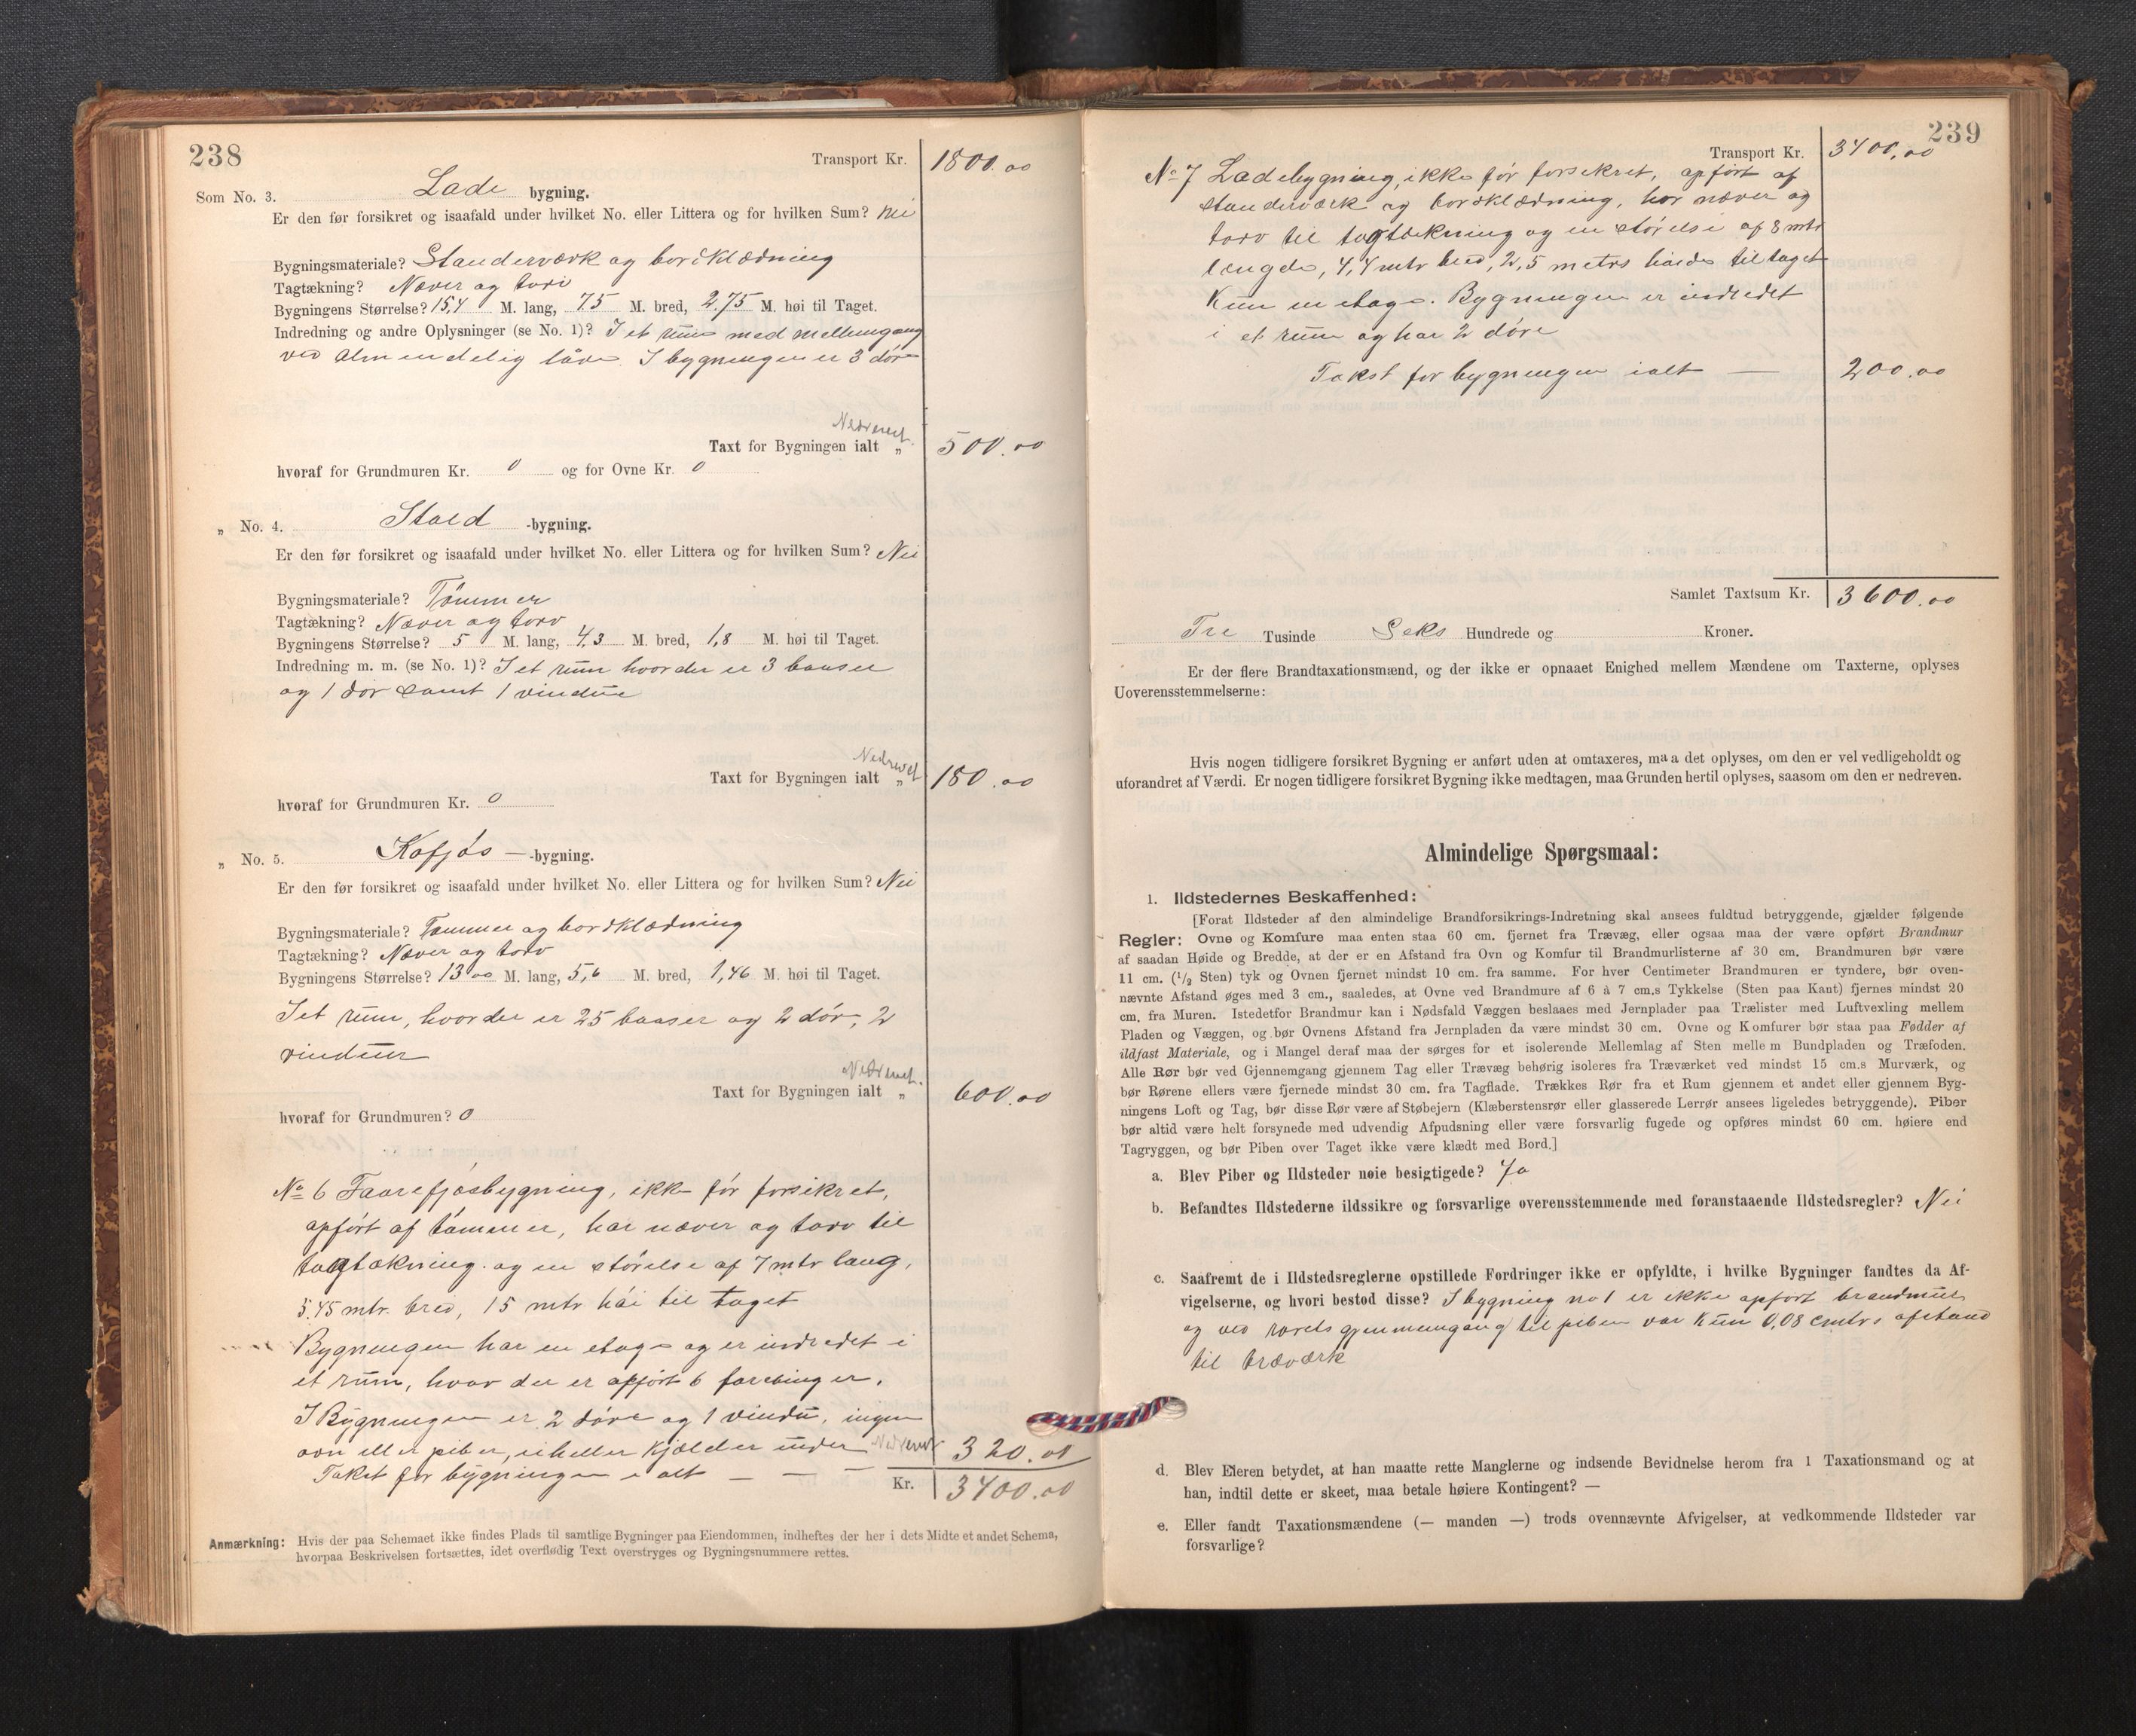 238
Transport Kr. 1800.00
Som No. 3. Lade bygning.
Er den før forsikret og isaafald under hvilket No. eller Littera og for hvilken Sum? Nei
Bygningsmateriale? Standerværk og bordklædning
Tagtækning? Næver og torv
Bygningens Størrelse? 15,4 M. lang, 7,5 M. bred, 2,75 M. høi til Taget.
Indredning og andre Oplysninger (se No. 1)? I et rum med mellemgang
ved almendelig låve. I bygningen er 3 døre
Nedrevet.
Taxt for Bygningen ialt „ 500.00
hvoraf for Grundmuren Kr. 0 og for Ovne Kr. 0
„ No. 4. Stald -bygning.
Er den før forsikret og isaafald under hvilket No. eller Littera og for hvilken Sum? Nei
Bygningsmateriale? Tømmer
Tagtækning? Næver og torv
Bygningens Størrelse? 5 M. lang, 4,3 M. bred, 1,8 M. høi til Taget.
Indredning m. m. (se No. 1)? I et rum hvor der er 3 baaser
og 1 dør samt 1 vindue
Nedrevet
Taxt for Bygningen ialt „ 180.00
hvoraf for Grundmuren Kr. 0
„ No. 5. Kofjøs — -bygning.
Er den før forsikret og isaafald under hvilket No. eller Littera og for hvilken Sum? Nei
Bygningsmateriale? Tømmer og bordklædning
Tagtækning? Næver og torv
Bygningens Størrelse? 13 00 M. lang, 5,6 M. bred, 1,46 M. høi til Taget.
I et rum, hvor der er 25 baaser og 2 dør, 2
vinduer
Nedrevet.
Taxt for Bygningen ialt „ 600.00
hvoraf for Grundmuren? 0
No 6 Faarefjøsbygning, ikke før forsikret,
opført af tømmer, har næver og torv til
tagtækning og en størelse af 7 mtr lang,
5,45 mtr. bred, 15 mtr høi til taget
Bygningen har en etage og er indredet i
et rum, hvor der er opført 6 farebinger.
I Bygningen er 2 døre og 1 vindu, ingen
ovn eller piber, eiheller kjælder under Nedrevet 320.00
Takst for bygningen ialt — — — Kr. 3400.00
Anmærkning: Hvis der paa Schemaet ikke findes Plads til samtlige Bygninger paa Eiendommen, indheftes der her i dets Midte et andet Schema,
hvorpaa Beskrivelsen fortsættes, idet overflødig Text overstryges og Bygningsnummere rettes.
239
Transport Kr. 3400.00
No 7 Ladebygning, ikke før forsekret, opført af
standerværk og bordklædning, har næver og
torv til tagtækning og en størelse af 8 mtr
længde, 4,4 mtr bred, 2,5 metrs høide til taget
Kun en etage. Bygningen er indredet
i et rum og har 2 døre
Takst for bygningen ialt — 200.00
Samlet Taxtsum Kr. 3600.00
Tre Tusinde Seks Hundrede og Kroner.
Er der flere Brandtaxationsmænd, og der ikke er opnaaet Enighed mellem Mændene om Taxterne, oplyses
Uoverensstemmelserne:
Hvis nogen tidligere forsikret Bygning er anført uden at omtaxeres, maa det oplyses, om den er vel vedligeholdt og
uforandret af Værdi. Er nogen tidligere forsikret Bygning ikke medtagen, maa Grunden hertil oplyses, saasom om den er nedreven.
Almindelige Spørgsmaal:
1. Ildstedernes Beskaffenhed:
[Forat Ildsteder af den almindelige Brandforsikrings-Indretning skal ansees fuldtud betryggende, gjælder følgende
Regler: Ovne og Komfure maa enten staa 60 cm. fjernet fra Trævæg, eller ogsaa maa der være opført Brandmur
af saadan Høide og Bredde, at der er en Afstand fra Ovn og Komfur til Brandmurlisterne af 30 cm. Brandmuren bør være
11 cm. (1/2 Sten) tyk og Ovnen fjernet mindst 10 cm. fra samme. For hver Centimeter Brandmuren er tyndere, bør oven-
nævnte Afstand øges med 3 cm., saaledes, at Ovne ved Brandmure af 6 à 7 cm.s Tykkelse (Sten paa Kant) fjernes mindst 20
cm. fra Muren. Istedetfor Brandmur kan i Nødsfald Væggen beslaaes med Jernplader paa Trælister med Luftvexling mellem
Pladen og Væggen, og bør Ovnens Afstand fra Jernpladen da være mindst 30 cm. Ovne og Komfurer bør staa paa Fødder af
ildfast Materiale, og i Mangel deraf maa der sørges for et isolerende Mellemlag af Sten mellem Bundpladen og Træfoden.
Alle Rør bør ved Gjennemgang gjennem Tag eller Trævæg behørig isoleres fra Træværket ved mindst 15 cm.s Murværk, og
bør Rørene ellers være fjernede mindst 30 cm. fra Tagflade. Trækkes Rør fra et Rum gjennem et andet eller gjennem Byg-
ningens Loft og Tag, bør disse Rør være af Støbejern (Klæberstensrør eller glasserede Lerrør ansees ligeledes betryggende). Piber
bør altid være helt forsynede med udvendig Afpudsning eller være forsvarlig fugede og opføres mindst 60 cm. høiere end
Tagryggen, og bør Piben over Taget ikke være klædt med Bord.]
a. Blev Piber og Ildsteder nøie besigtigede? Ja
b. Befandtes Ildstederne ildssikre og forsvarlige overensstemmende med foranstaaende Ildstedsregler? Nei
c. Saafremt de i Ildstedsreglerne opstillede Fordringer ikke er opfyldte, i hvilke Bygninger fandtes da Af-
vigelserne, og hvori bestod disse? I bygning no 1 er ikke opført brandmur
og ved rørets gjennemgang til piben var Kun 0,08 cmtrs afstand
til træværk
d. Blev Eieren betydet, at han maatte rette Manglerne og indsende Bevidnelse herom fra 1 Taxationsmand og at
han, indtil dette er skeet, maa betale høiere Kontingent? —
e. Eller fandt Taxationsmændene (— manden —) trods ovennævnte Afvigelser, at vedkommende Ildsteder var
forsvarlige?